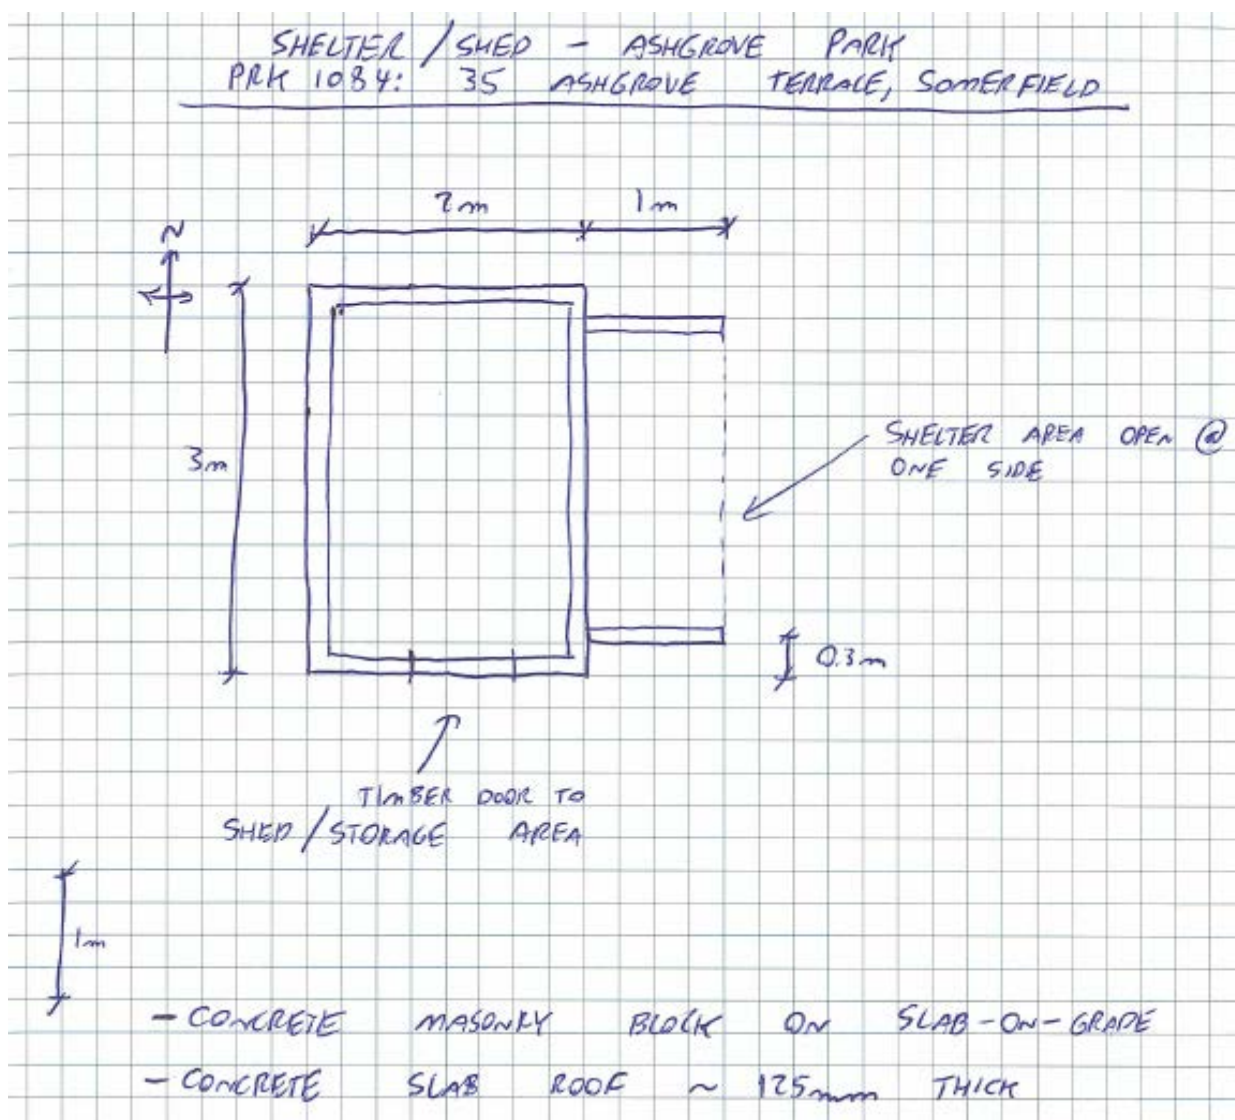 SHELTER / SHED - ASHGROVE PARK
PRK 1084: 35 ASHGROVE TERRACE, SOMERFIELD
2m
1m
N
3m
SHELTER AREA OPEN @
ONE SIDE
0.3m
TIMBER DOOR TO
SHED / STORAGE AREA
1m
- CONCRETE MASONRY BLOCK ON SLAB-ON-GRADE
- CONCRETE SLAB ROOF ~ 125mm THICK